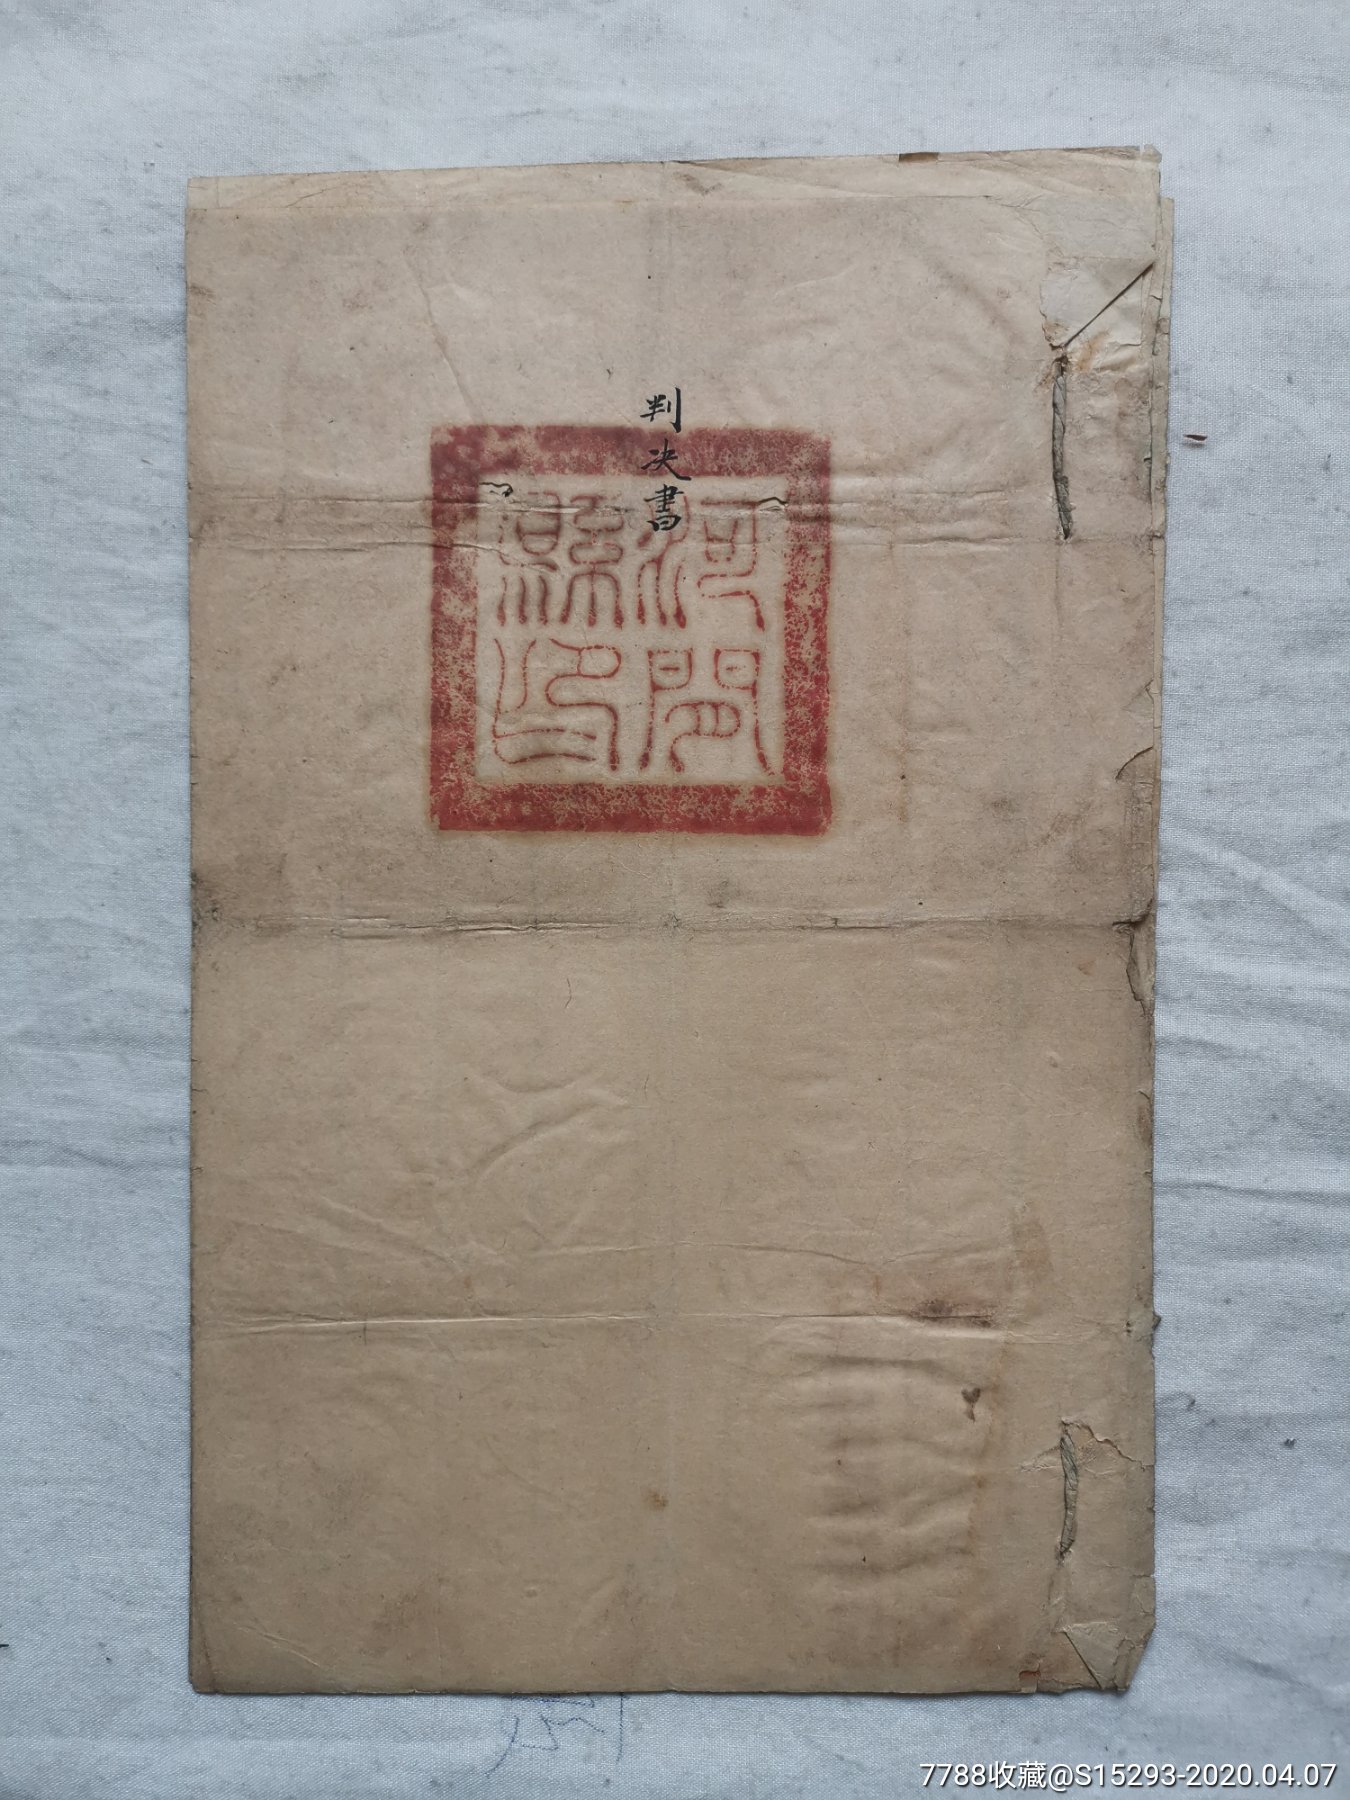 判决書
河間
縣印
7788收藏@S15293-2020.04.07